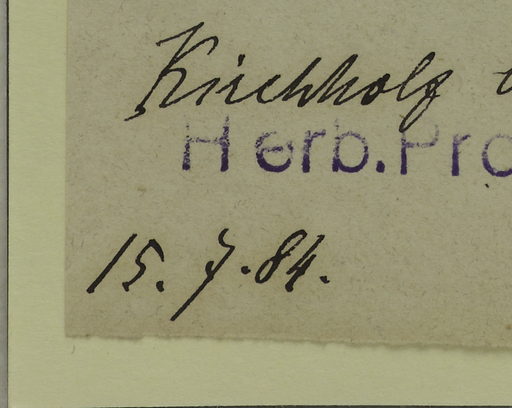 Kirchholz
Herb. Pro
15. 7. 84.